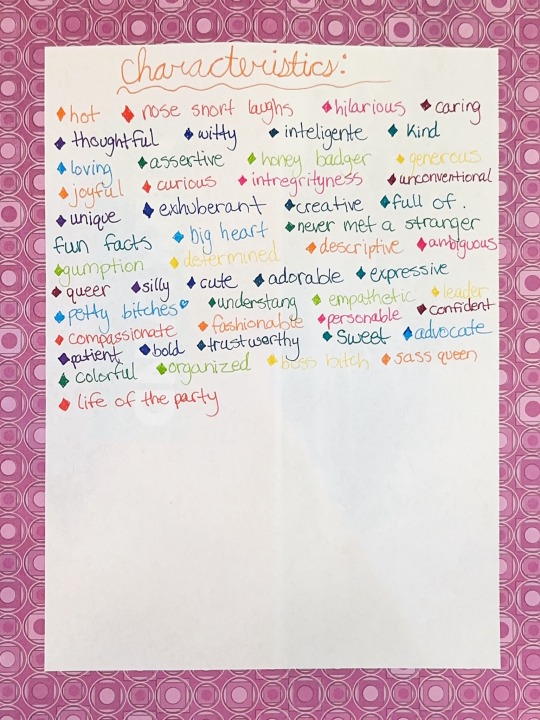 characteristics:
hot nose snort laughs hilarious caring
thoughtful witty inteligente kind
loving assertive honey badger generous
joyful curious intregrityness unconventional
unique exhuberant creative full of.
fun facts big heart never met a stranger
gumption determined descriptive ambiguous
queer silly cute adorable expressive
petty bitches understang empathetic leader
compassionate fashionable personable confident
patient bold trustworthy sweet advocate
colorful organized boss bitch sass queen
life of the party